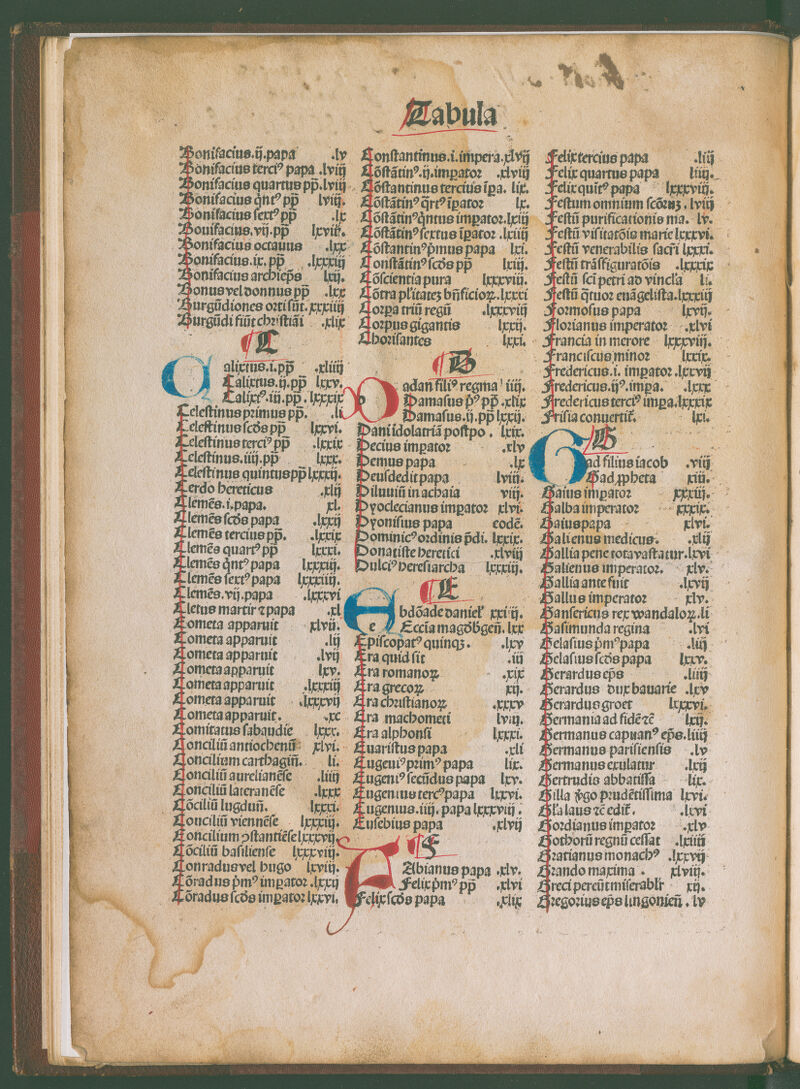 Tabula
Bonifacius.ij.papa .lv
Bonifacius tercꝰ papa .lviij
Bonifacius quartus pp̄.lviij
Bonifacius q̄ntꝰ pp̄ lviij.
Bonifacius sextꝰ pp̄ .lx
Bonifacius.vij.pp̄ lxvij.
Bonifacius octauus .lxx
Bonifacius.ix.pp̄ .lxxxiij
Bonifacius archiep̄s lxij.
Bonus vel donnus pp̄ .lxx
Burgūdiones orti sūt.xxxiiij
Burgūdi fiūt christiāi .xlix
C
Calixtus.i.pp̄ .xliiij
Calixtus.ij.pp̄ lxxv.
Calixꝰ.iij.pp̄. lxxxix
Celestinus primus pp̄. .li
Celestinus scd̄s pp̄ lxxvi.
Celestinus tercꝰ pp̄ .lxxix
Celestinus.iiij.pp̄ lxxx.
Celestinus quintus pp̄ lxxxij.
Cerdo hereticus .xlij
Clemēs.i.papa. xl.
Clemēs scd̄s papa .lxxij
Clemēs tercius pp̄. .lxxix
Clemēs quartꝰ pp̄ lxxxi.
Clemēs q̄ntꝰ papa lxxxiij.
Clemēs sextꝰ papa lxxxiiij.
Clemēs.vij.papa .lxxxvi
Cletus martir ⁊ papa .xl
Cometa apparuit xlvij.
Cometa apparuit .lij
Cometa apparuit .lvij
Cometa apparuit lxv.
Cometa apparuit .lxxxiij
Cometa apparuit .lxxxvij
Cometa apparuit. .xc
Comitatus sabaudie lxxx.
Conciliū antiochenū xlvi.
Concilium carthagiñ. li.
Conciliū aurelianēse .liiij
Conciliū lateranēse .lxxx
Cōciliū lugduñ. lxxxi.
Conciliū viennēse lxxxiij.
Concilium ɔstantiēse lxxxvij.
Cōciliū basiliense lxxxviij.
Conradus vel hugo lxviij.
Cōradus p̄mꝰ imꝑator .lxxij
Cōradus scd̄s imꝑator lxxvi.
Constantinus.i.impera.xlvij
Cōstātinꝰ.ij.imꝑator .xlviij
Cōstantinus tercius īꝑa. lix.
Cōstātinꝰ q̄rtꝰ īꝑator lx.
Cōstātinꝰ q̄ntus imꝑator.lxiij
Cōstātinꝰ sextus īꝑator .lxiij
Cōstantinꝰ p̄mus papa lxi.
Constātinꝰ scd̄s pp̄ lxiij.
Cōscientia pura lxxxviij.
Cōtra pl̄itatez bn̄ficioꝝ.lxxxi
Corꝑa triū regū .lxxxviij
Corpus gigantis lxxij.
Chorisantes lxxi.
D
Dadan filiꝰ regina iiij.
Damasus p̄ꝰ pp̄ .xlix
Damasus.ij.pp̄ lxxij.
Dani idolatriā postpo. lxix.
Decius imꝑator .xlv
Demus papa .lx
Deusdedit papa lviij.
Diluuiū in achaia viij.
Dyoclecianus imꝑator xlvi.
Dyonisius papa eodē.
Dominicꝰ ordinis p̄di. lxxix.
Donatiste heretici .xlviij
Dulcꝰ heresiarcha lxxxiij.
E
Ebdōade danieł xxi ij.
Eccīa magdb̄geñ. lxx
Episcopatꝰ quinqꝫ. .lxv
Era quid sit .iij
Era romanoꝝ .xix
Era grecoꝝ xij.
Era christianoꝝ .xxxv
Era machometi lviij.
Era alphonsi lxxxi.
Euaristus papa .xli
Eugeniꝰ primꝰ papa lix.
Eugeniꝰ secūdus papa lxv.
Eugenius tercꝰ papa lxxvi.
Eugenius.iiij.papa lxxxviij.
Eusebius papa .xlvij
F
Fabianus papa .xlv.
Felix p̄mꝰ pp̄ .xlvi
Felix scd̄s papa .xlix
Felix tercius papa .liij
Felix quartus papa liiij.
Felix quītꝰ papa lxxxviij.
Festum omnium scōꝝ .lviij
Festū purificationis ma. lv.
Festū visitatōis marie lxxxvi.
Festū venerabilis sacr̄i lxxxi.
Festū trāsfiguratōis .lxxxix
Festū scī petri ad vincl̄a li.
Festū q̄tuor euāgelista.lxxxiij
Formosus papa lxvij.
Florianus imperator .xlvi
Francia in merore lxxxviij.
Franciscus minor lxxix.
Fredericus.i. imꝑator .lxxvij
Fredericus.ijꝰ.impa. .lxxx
Fredericus tercꝰ imꝑa.lxxxix
Frisia conuertiť. lxi.
G
Gad filius iacob .viij
Gad ꝓpheta xiij.
Gaius imꝑator xxxiij.
Galba imperator xxxix.
Gaius papa xlvi.
Galienus medicus. .xlij
Gallia pene tota vastatur.lxvi
Galienus imperator. xlv.
Gallia ante fuit .lxvij
Gallus imperator xlv.
Gansericus rex wandaloꝝ.li
Gasimunda regina .lvi
Gelasius p̄mꝰ papa .liij
Gelasius scd̄s papa lxxv.
Gerardus ep̄s .liiij
Gerardus dux bauarie .lxv
Gerardus groet lxxxvi.
Germania ad fidē ⁊c̄ lxij.
Germanus capuanꝰ ep̄s.liiij
Germanus parisiensis .lv
Germanus exulatur .lxij
Gertrudis abbatissa lix.
Gilla v̄go prudētissima lxvi.
Gl̄a laus ⁊c̄ ediť. .lxvi
Gordianus imꝑator .xlv
Gothorū regnū cessat .lxiij
Gratianus monachꝰ .lxxvij
Grando maxima . xlviij.
Greci pereūt miserabĺr xij.
Gregorius ep̄s lingonieñ. lv